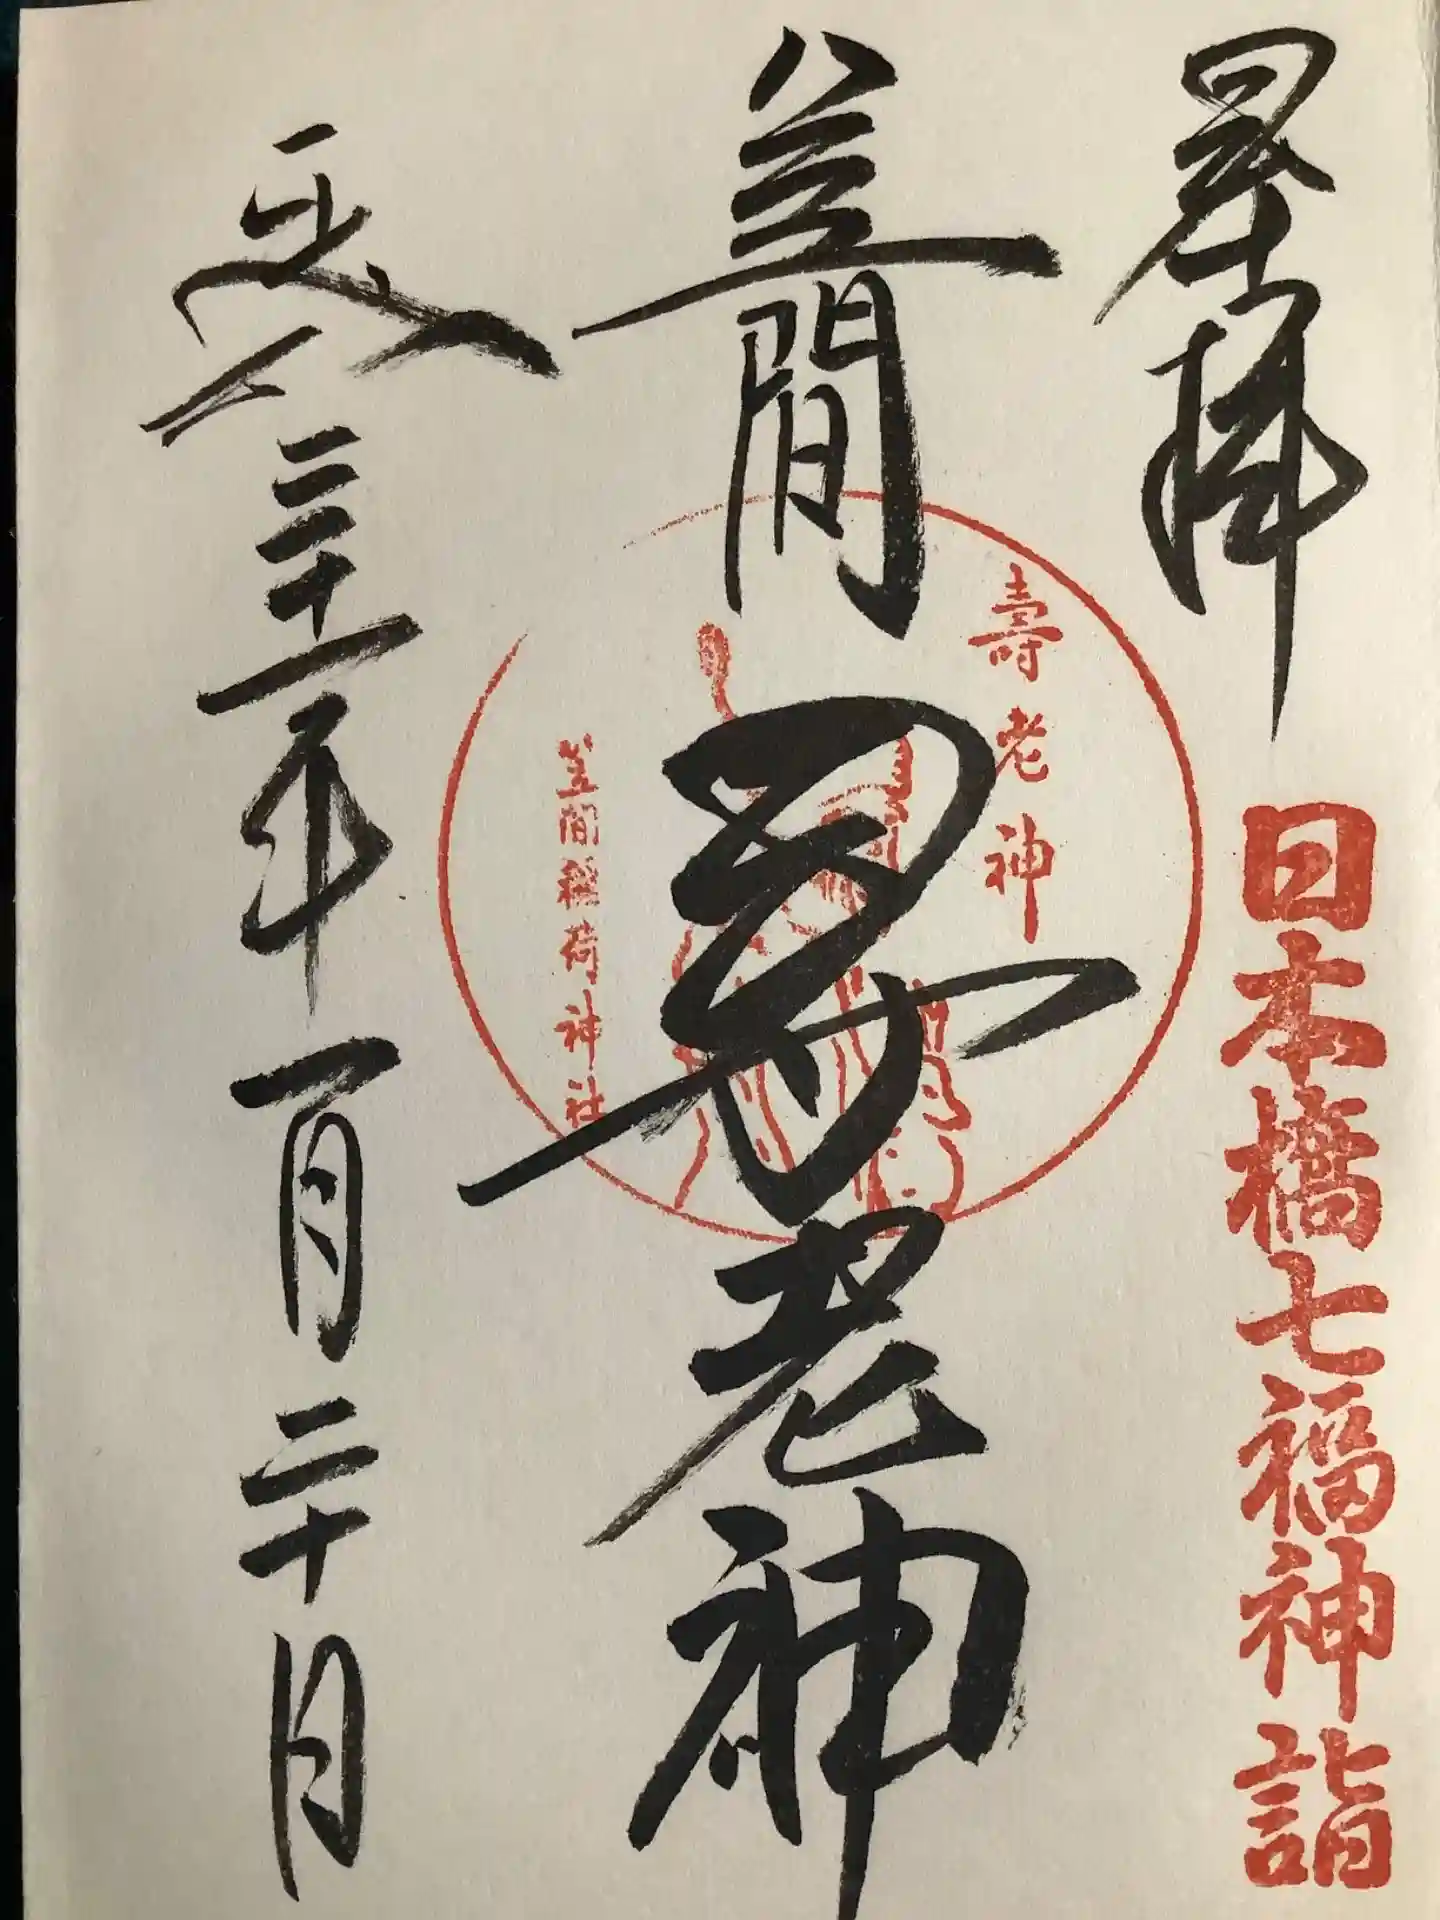 拝
日本橋七福神詣
笠間 壽老神
壽老神
笠間稲荷神社
平成二十一年一月二十日